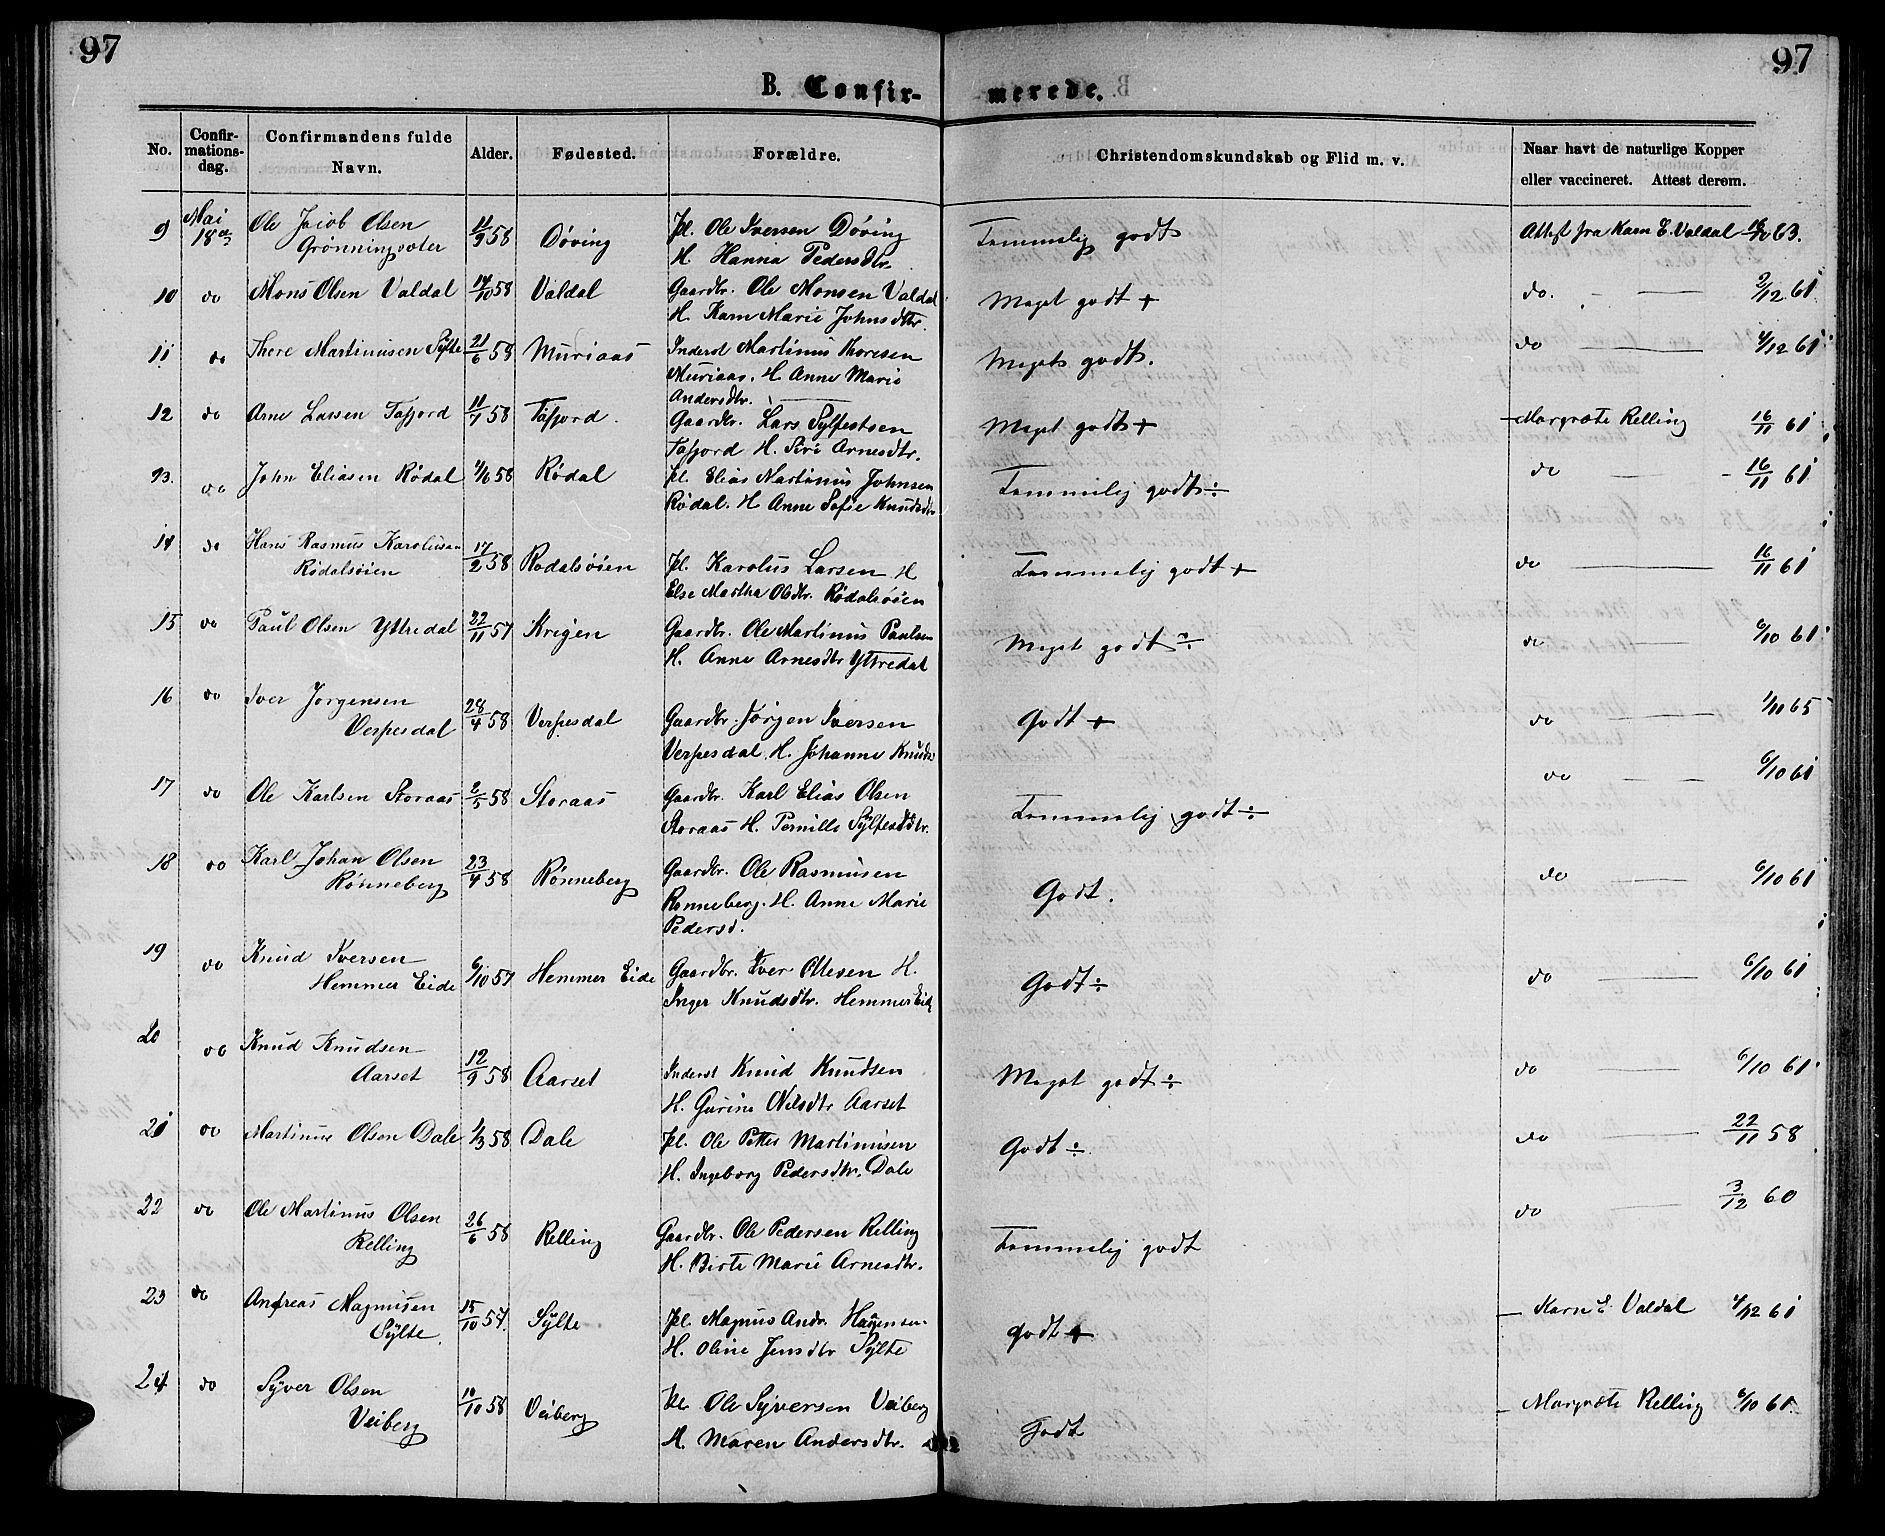 97
97
B. Confir-
merede.
No.
Confir-
mations-
dag.
Confirmandens fulde
Navn.
Alder.
Fødested.
Forældre.
Christendomskundskab og Flid m. v.
Naar havt de naturlige Kopper
eller vaccineret. Attest derom.
9 Mai 18de Ole Jacob Olsen 11/9 58 Døving Pl. Ole Iversen Døving Temmelig godt Attest fra Karn E. Valdal 63.
Grønningsæter H. Hanna Pedersdtr.
10 do Mons Olsen Valdal 14/10 58 Valdal Gaardbr. Ole Monsen Valdal Meget godt + do. 2/12 61
H. Karn Marie Johnsdtr.
11 do Thore Martinusen Sylte 21/6 58 Muriaas Inderst Martinus Thoresen Meget godt. do 4/12 61
Muriaas. H. Anne Marie
Andersdtr.
12 do Arne Larsen Tafjord 11/7 58 Tafjord. Gaardbr. Lars Sylfestsen Meget godt + Margrete Relling 16/11 61
Tafjord H. Siri Arnesdtr.
13. do John Eliasen Rødal 4/6 58 Rødal Pl. Elias Martinus Johnsen Temmelig godt ÷ do 16/11 61
Rødal. H Anne Sofie Knudsdtr
14 do Hans Rasmus Karolusen 17/2 58 Rødalsøien Pl. Karolus Larsen H Temmelig godt + do 16/11 61
Rødalsøien Else Martha Olsdtr. Rødalsøien
15 do Paul Olsen Yttredal 22/11 57 Krigen Gaardbr. Ole Martinus Paulsen Meget godt ÷ do 6/10 61
H. Anne Arnesdtr Yttredal
16 do Iver Jørgensen 28/4 58 Verpesdal Gaardbr. Jørgen Iversen Godt + do 1/11 65
Verpesdal Verpesdal. H. Johanne Knuds
17 do Ole Karlsen Storaas 2/5 58 Storaas Gaardbr. Karl Elias Olsen Temmelig godt ÷ do 6/10 61
Storaas H. Pernille Sylfestdtr.
18 do Karl Johan Olsen 23/4 58 Rønneberg Gaardbr. Ole Rasmusen Godt. do 6/10 61
Rønneberg Rønneberg. H. Anne Marie
Pedersd.
19 do Knud Iversen 6/10 57 Hemmer Eide Gaardbr. Iver Ottesen H. Godt ÷ do 6/10 61
Hemmer Eide Inger Knudsdtr. Hemmer Eid
20 do Knud Knudsen 12/9 58 Aarset Inderst Knud Knudsen Meget godt ÷ do 6/10 61
Aarset H. Gurine Nilsdtr Aarset
21 do Martinus Olsen Dale 1/3 58 Dale Pl. Ole Petter Martinusen Godt ÷ do 22/11 58
H. Ingeborg Pedersdtr. Dale
22 do Ole Martinus Olsen 26/6 58 Relling Gaardbr. Ole Pedersen Relling Temmelig godt do 3/12 60
Relling H. Birte Marie Arnesdtr.
23 do Andreas Magnusen 15/10 57. Sylte Pl. Magnus Andr. Hagensen godt + Karn E. Valdal 4/12 61
Sylte H. Oline Jensdtr Sylte
24 do Syver Olsen 10/10 58 Veiberg Pl. Ole Syversen Veiberg Godt Margrete Relling 6/10 61
Veiberg H. Maren Andersdtr.